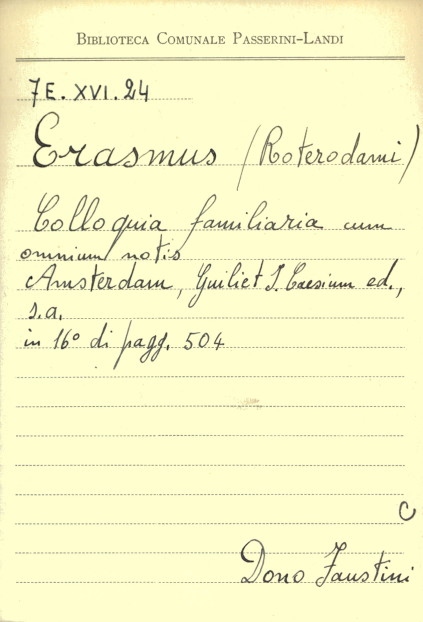 BIBLIOTECA COMUNALE PASSERINI-LANDI
7E. XVI. 24
Erasmus (Roterodami)
Colloquia familiaria cum
omnium notis
Amsterdam, Guiliet J. Caesium ed.,
s.a.
in 16° di pagg. 504
C
Dono Faustini